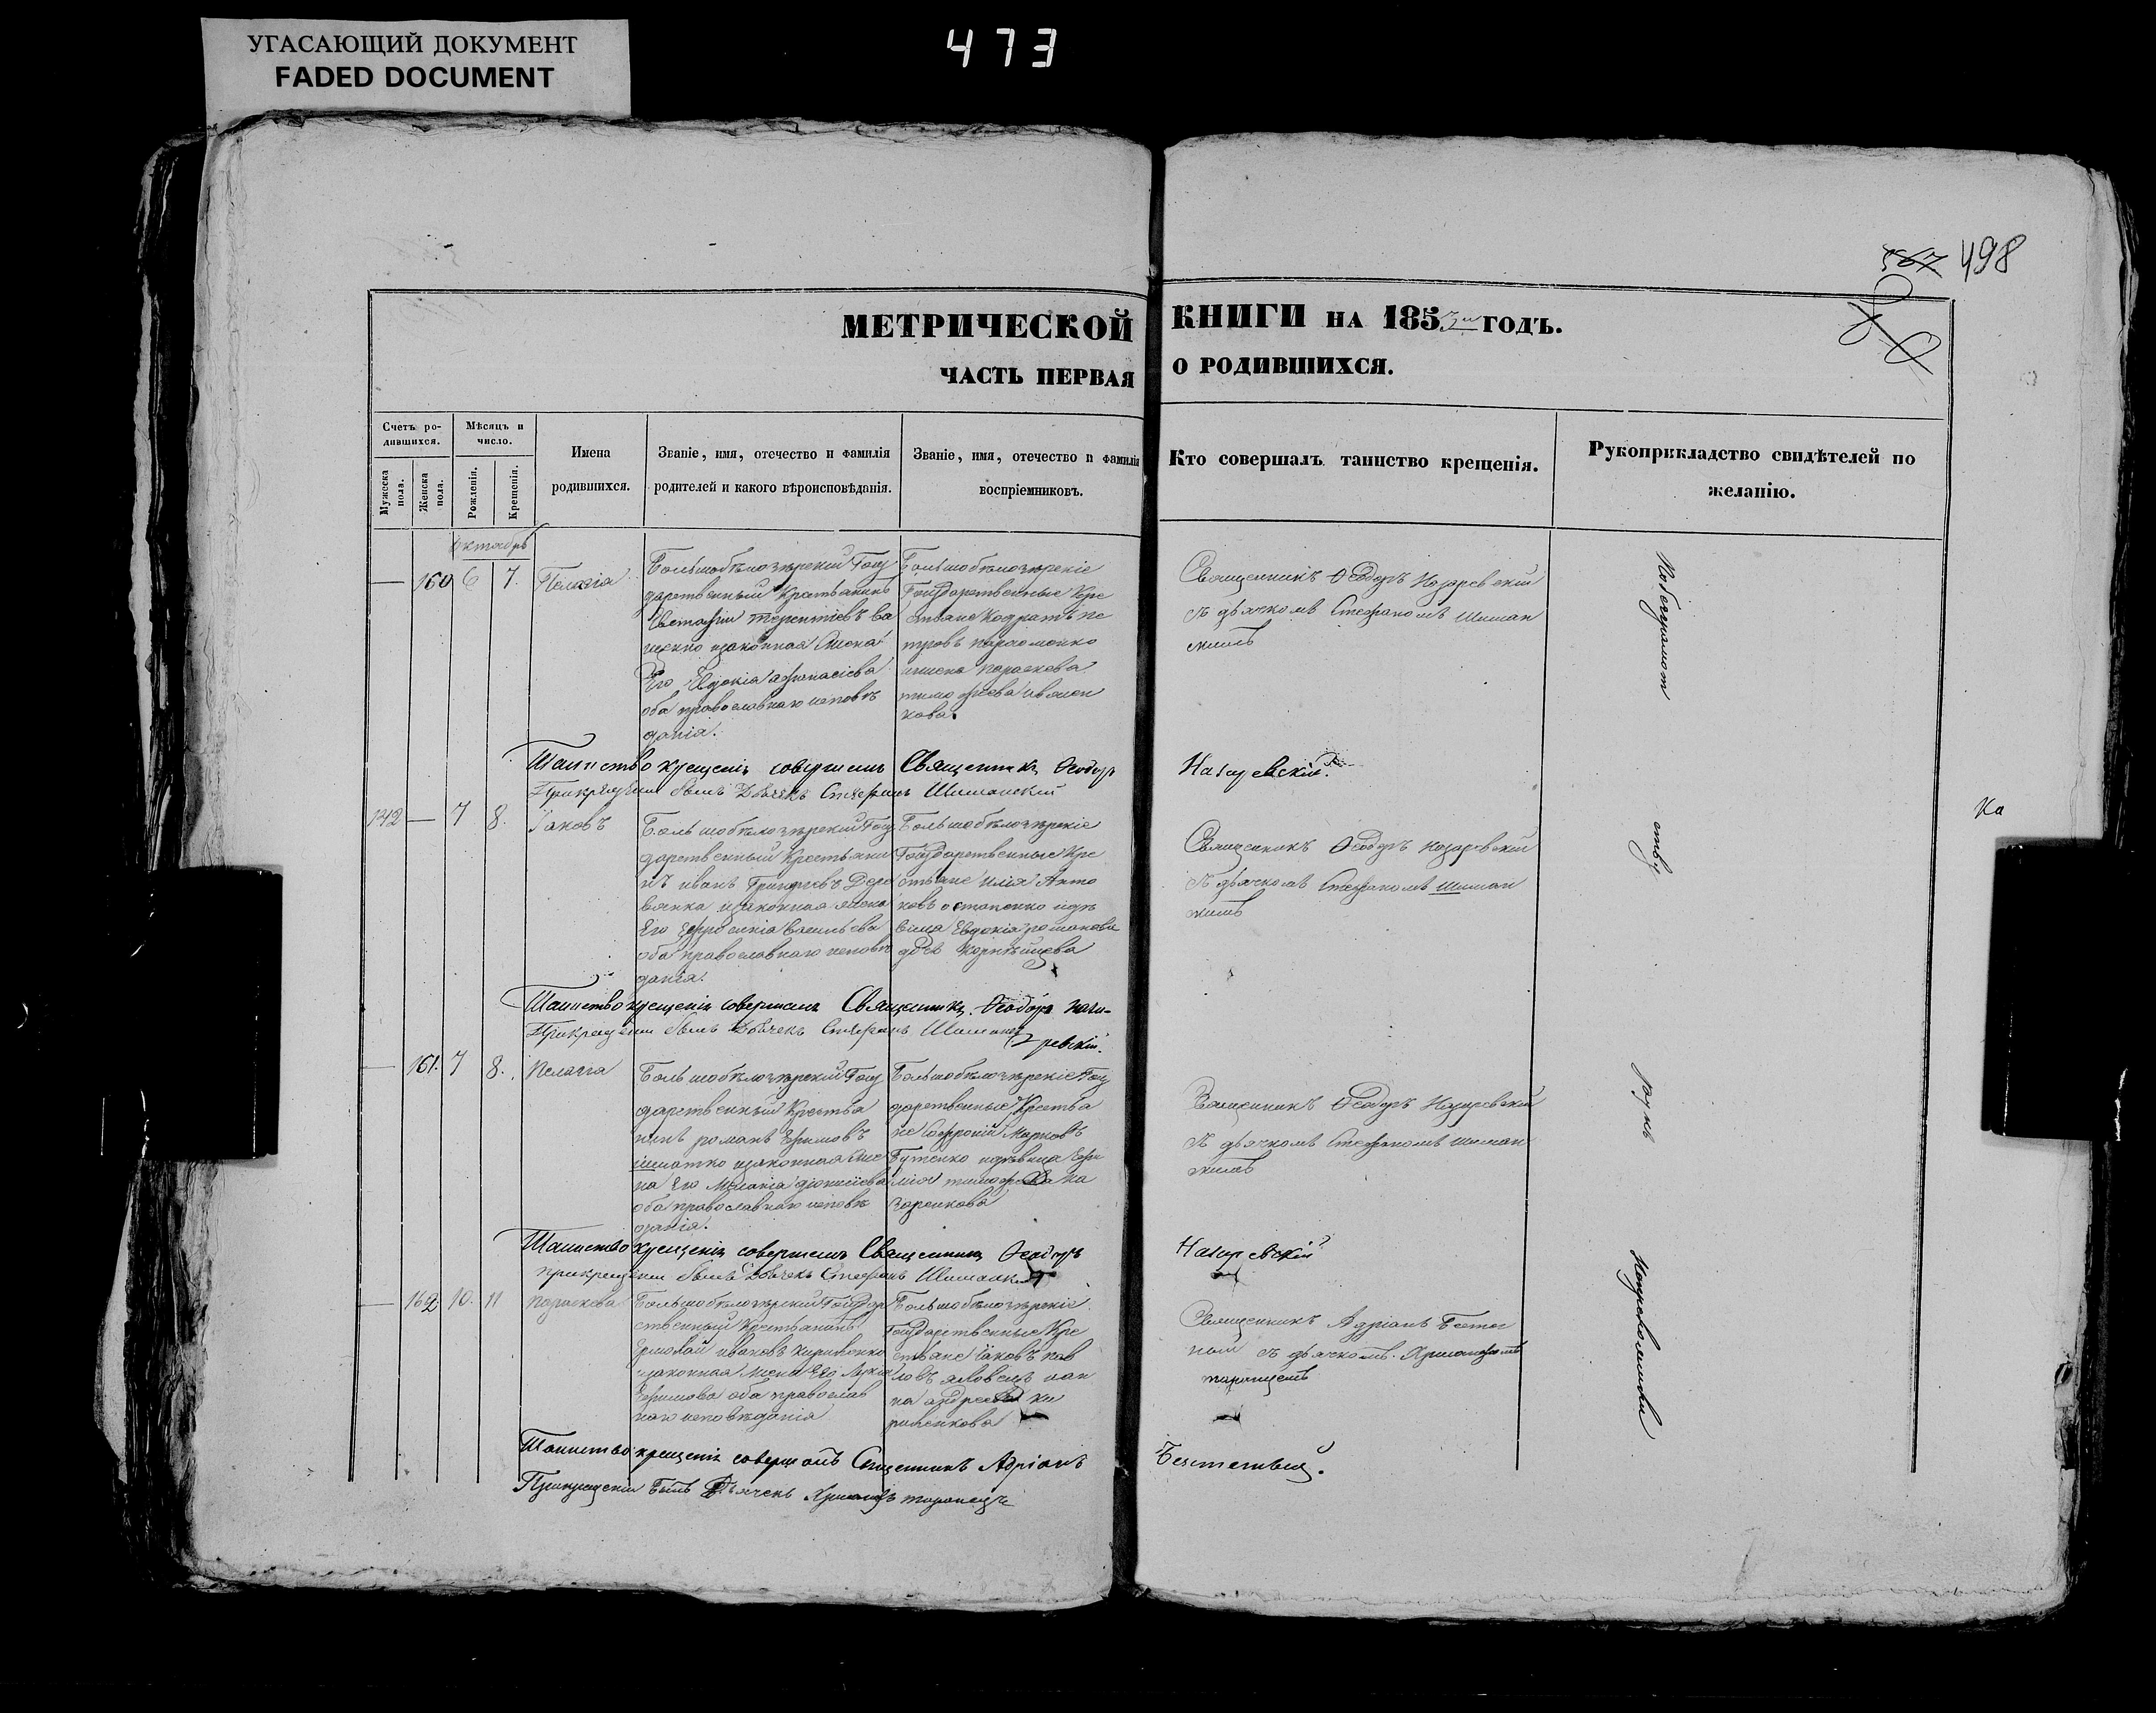 УГАСАЮЩИЙ ДОКУМЕНТ
FADED DOCUMENT
473
498
МЕТРИЧЕСКОЙ КНИГИ НА 1853й ГОДЪ.
ЧАСТЬ ПЕРВАЯ О РОДИВШИХСЯ.
Счетъ ро-
дившихся.
Мужеска
пола.
Женска
пола.
Мѣсяцъ и
число.
Рожденія.
Крещенія.
Имена
родившихся.
Званіе, имя, отечество и фамилія
родителей и какого вѣроисповѣданія.
Званіе, имя, отечество и фамилія
воспріемниковъ.
Кто совершалъ таинство крещенія.
Рукоприкладство свидѣтелей по
желанію.
Октябрь
— 160 6 7. Пелагія
Большобѣлозѣрскій Госу
дарственный Крестьянинъ
Евстафій Терентіевъ Ва
щенко изаконная Жена
Его Евдокія Афанасіева
оба православнаго исповѣ
данія.
Большобѣлозѣрскіе
Государственные Кре
стьяне Кодратъ пе
тровъ парсоменко
ижена параскева
тимофеева
кова.
Священникъ Феодоръ Назаревскій
съ дьячкомъ Стефаномъ Шиман
скимъ
Таинство крещенія совершалъ Священникъ Феодоръ Назаревскій.
Прикрещеніи былъ Дьячекъ Стефанъ Шиманскій
142 — 7 8. Іаковъ
Большобѣлозѣрскій Госу
дарственный Крестьяни
нъ иванъ Григорьевъ Дере
вянка изаконная жена
Его Ефросинія Васильева
оба православнаго исповѣ
данія.
Большобѣлозѣрскіе
Государственные Кре
стьяне илія Анто
новъ остапенко идѣ
вица Евдокія романова
дчь
Священникъ Феодоръ Назаревскій
съ дьячкомъ Стефаномъ Шиман
скимъ
Таинство крещенія совершалъ Священникъ Феодоръ Наза-
ревскій.
Прикрещеніи былъ Дьячекъ Стефанъ Шиманск
— 161. 7 8. Пелагія
Большобѣлозѣрскій Госу
дарственный Крестья
нинъ романъ Ефимовъ
Шматко изаконная Же
на Его Меланія діонисіева
оба православнаго исповѣ
данія.
Большобѣлозѣрскіе Госу
дарственные Крестья
не Софроній Марковъ
Бутенко идѣвица Ефи
мія тимофеева На
заренкова
Священникъ Феодоръ Назаревскій
съ дьячкомъ Стефаномъ Шиман
скимъ
Таинство крещенія совершалъ Священникъ Феодоръ Назаревскій
прикрещеніи былъ Дьячекъ Стефанъ Шиманскій
— 162 10. 11 параскева
Большобѣлозѣрскій Государ
ственный Крестьянинъ
Ермолай ивановъ Кириленко
изаконная Жена Его
Ефимова оба православ
наго исповѣданія
Большобѣлозѣрскіе
Государственные Кре
стьяне іаковъ пав
ловъ яловецъ иан
на андреева Ки
риленкова
Священникъ Адріанъ
съ дьячкомъ
Таинство крещенія совершалъ Священникъ Адріанъ
Прикрещеніи былъ Дьячекъ
По безграмот
ству
рукъ
Неприложили
Ка